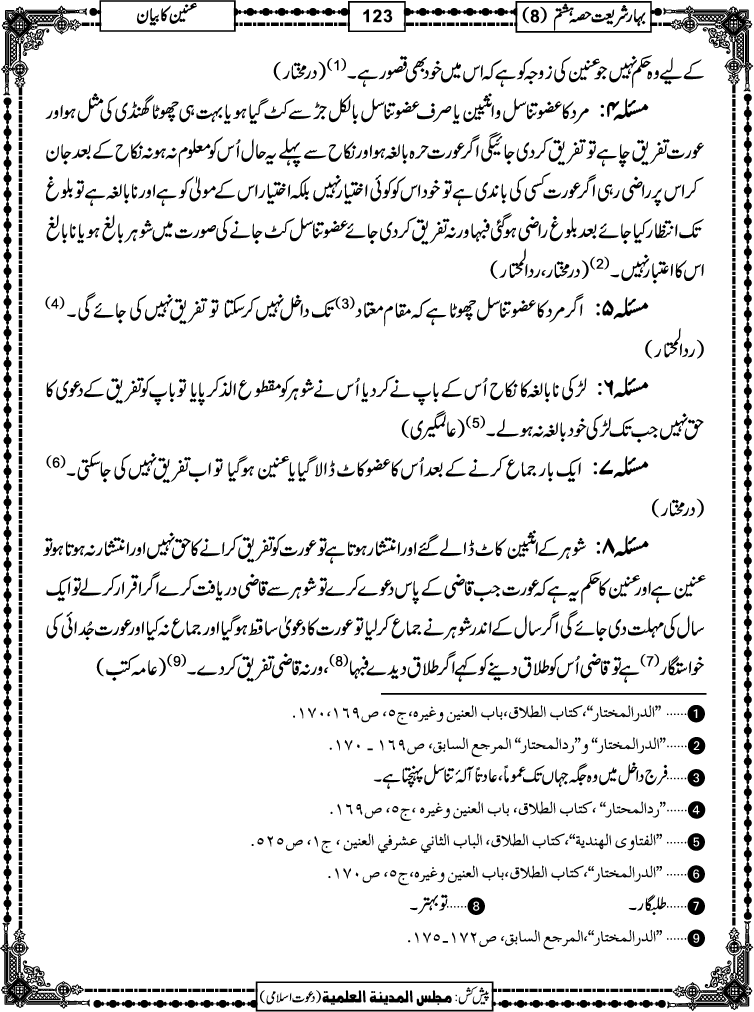 بہارِ شریعت حصہ ہشتم (8)
123
عنین کا بیان
کے لیے وہ حکم نہیں جو عنین کی زوجہ کو ہے کہ اس میں خود بھی قصور ہے۔(1) (درمختار)
مسئلہ ۴: مرد کا عضو تناسل و انثیین یا صرف عضو تناسل بالکل جڑ سے کٹ گیا ہو یا بہت ہی چھوٹا گھنڈی کی مثل ہو اور
عورت تفریق چاہے تو تفریق کر دی جائیگی اگر عورت حرہ بالغہ ہو اور نکاح سے پہلے یہ حال اُس کو معلوم نہ ہو نہ نکاح کے بعد جان
کر اس پر راضی رہی اگر عورت کسی کی باندی ہے تو خود اس کو کوئی اختیار نہیں بلکہ اختیار اس کے مولیٰ کو ہے اور نابالغہ ہے تو بلوغ
تک انتظار کیا جائے بعد بلوغ راضی ہوگئی فبہا ورنہ تفریق کر دی جائے عضو تناسل کٹ جانے کی صورت میں شوہر بالغ ہو یا نابالغ
اس کا اعتبار نہیں۔(2) (درمختار، ردالمحتار)
مسئلہ ۵: اگر مرد کا عضو تناسل چھوٹا ہے کہ مقام معتاد(3) تک داخل نہیں کرسکتا تو تفریق نہیں کی جائے گی۔(4)
(ردالمحتار)
مسئلہ ۶: لڑکی نابالغہ کا نکاح اُس کے باپ نے کر دیا اُس نے شوہر کو مقطوع الذکر پایا تو باپ کو تفریق کے دعویٰ کا
حق نہیں جب تک لڑکی خود بالغہ نہ ہولے۔(5) (عالمگیری)
مسئلہ ۷: ایک بار جماع کرنے کے بعد اُس کا عضو کاٹ ڈالا گیا یا عنین ہوگیا تو اب تفریق نہیں کی جاسکتی۔(6)
(درمختار)
مسئلہ ۸: شوہر کے انثیین کاٹ ڈالے گئے اور انتشار ہوتا ہے تو عورت کو تفریق کرانے کا حق نہیں اور انتشار نہ ہوتا ہو تو
عنین ہے اور عنین کا حکم یہ ہے کہ عورت جب قاضی کے پاس دعوے کرے تو شوہر سے قاضی دریافت کرے اگر اقرار کرلے تو ایک
سال کی مہلت دی جائے گی اگر سال کے اندر شوہر نے جماع کرلیا تو عورت کا دعویٰ ساقط ہوگیا اور جماع نہ کیا اور عورت جُدائی کی
خواستگار(7) ہے تو قاضی اُس کو طلاق دینے کو کہے اگر طلاق دیدے فبہا(8)، ورنہ قاضی تفریق کر دے۔(9) (عامہ کتب)
1 ...... ”الدرالمختار“، کتاب الطلاق، باب العنین وغیرہ، ج۵، ص۱۶۹،۱۷۰.
2 ...... ”الدرالمختار“ و”ردالمحتار“ المرجع السابق، ص۱۶۹ ـ ۱۷۰.
3 ...... فرج داخل میں وہ جگہ جہاں تک عموماً، عادتاً آلۂ تناسل پہنچتا ہے۔
4 ...... ”ردالمحتار“، کتاب الطلاق، باب العنین وغیرہ، ج۵، ص۱۶۹.
5 ...... ”الفتاوی الهندية“، کتاب الطلاق، الباب الثاني عشرفي العنین، ج۱، ص۵۲۵.
6 ...... ”الدرالمختار“، کتاب الطلاق، باب العنین وغیرہ، ج۵، ص۱۷۰.
7 ...... طلبگار۔ 8 ...... تو بہتر۔
9 ...... ”الدرالمختار“، المرجع السابق، ص۱۷۲ـ۱۷۵.
پیش کش: مجلس المدینة العلمیة (دعوت اسلامی)